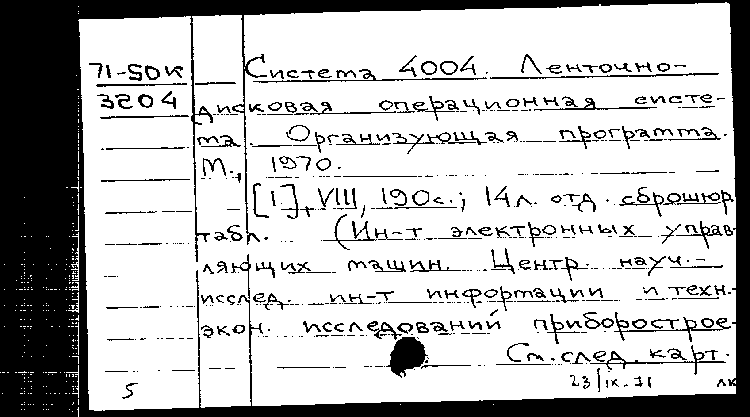 71-50к
3204
Система 4004. Ленточно-
дисковая операционная систе-
ма. Организующая программа.
М., 1970.
[1], VIII, 190с.; 14л. отд. сброшюр
табл. (Ин-т электронных управ-
ляющих машин. Центр. науч.-
исслед. ин-т информации и техн.-
экон. исследований приборострое-
См. след. карт.
5
23/IX-71 лк